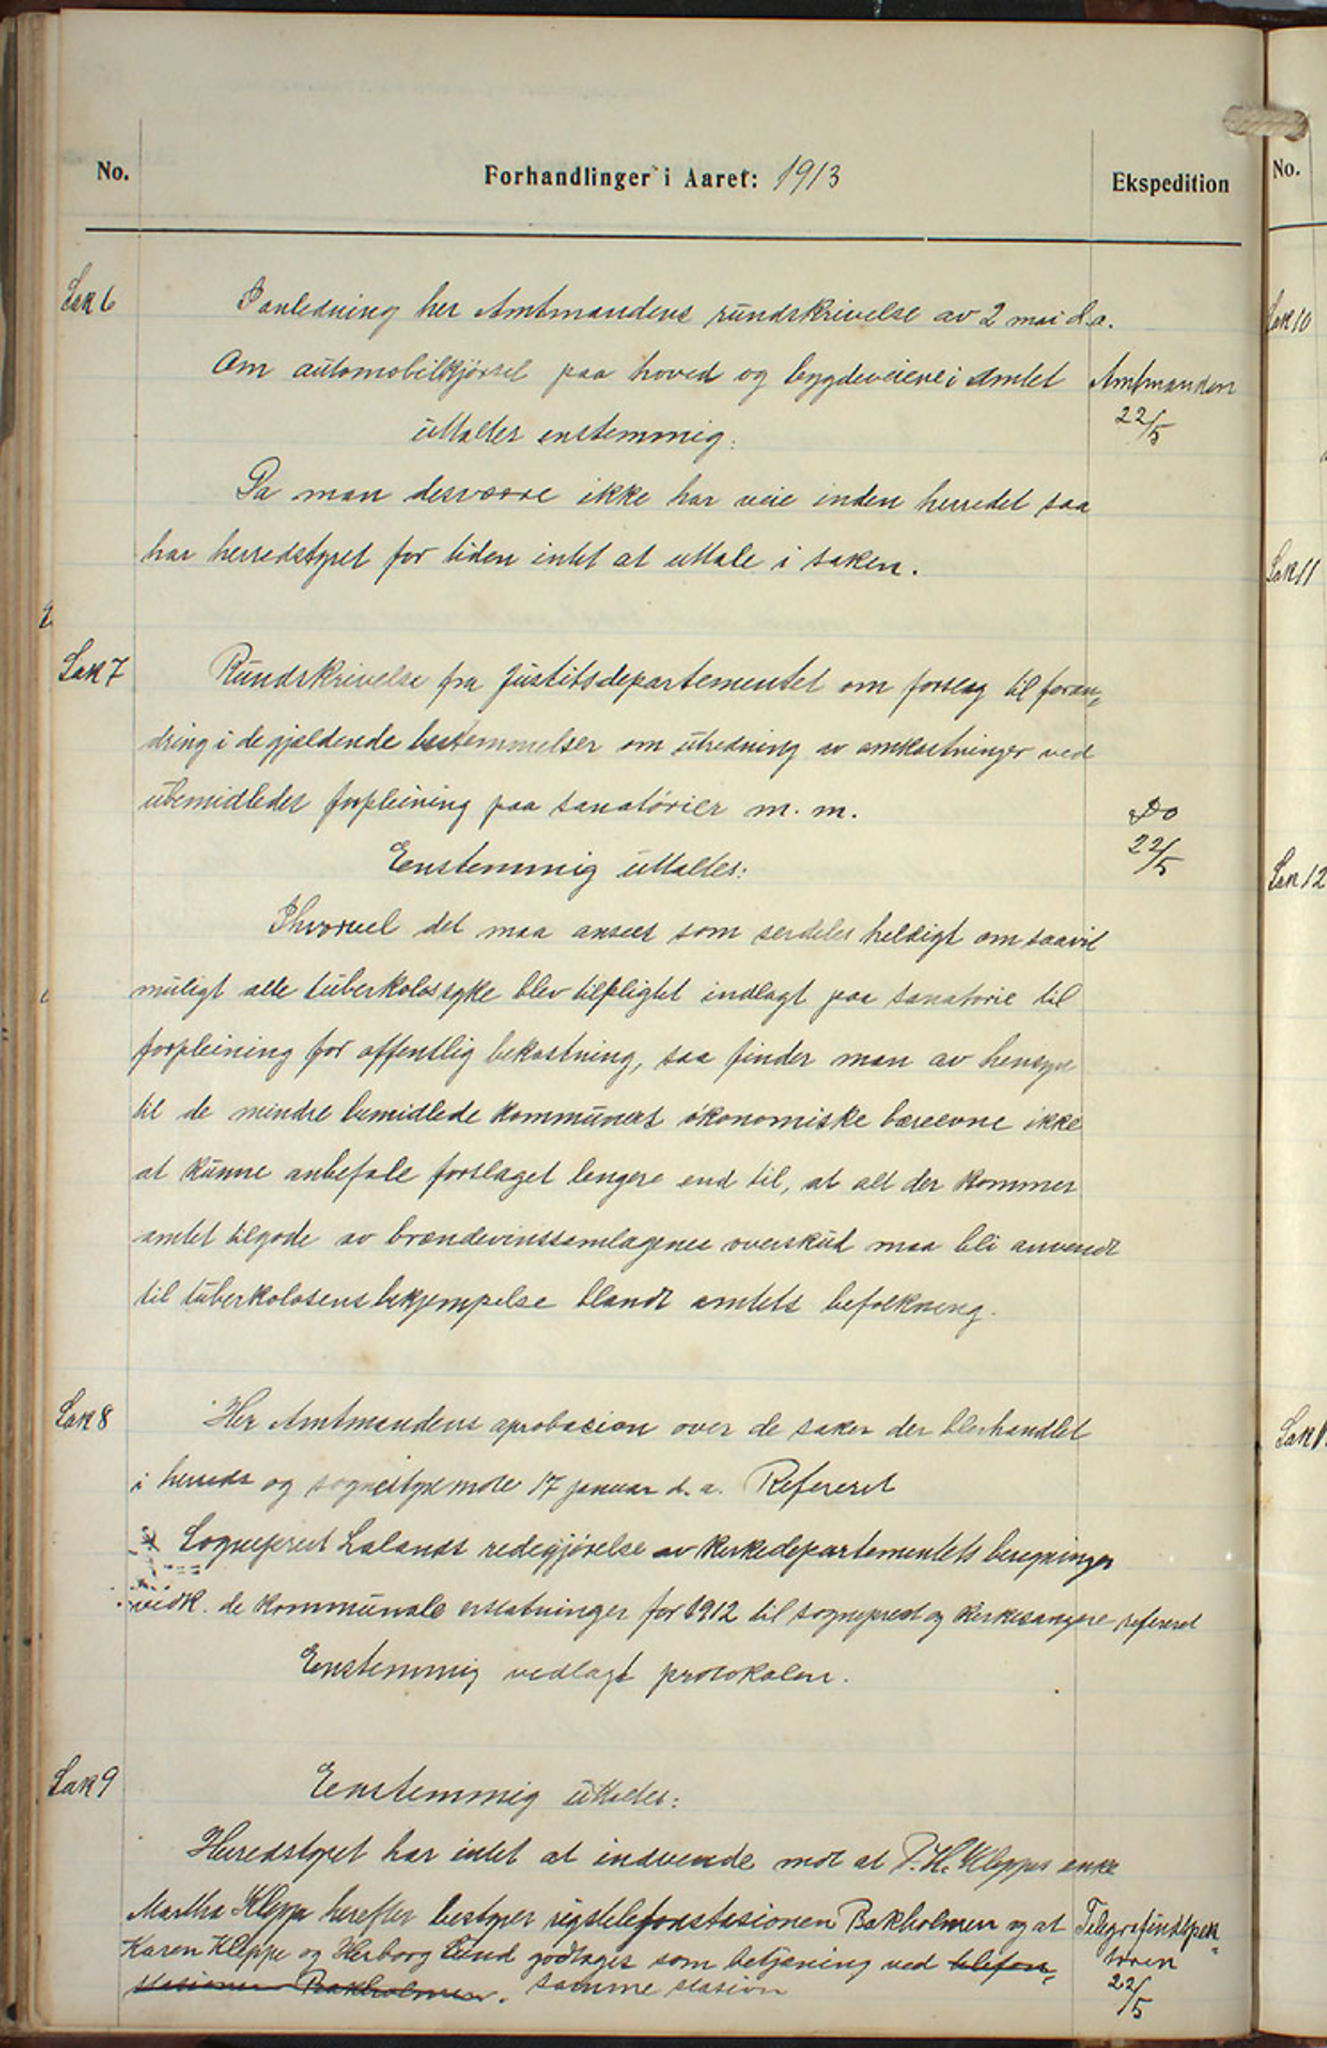 No.
Forhandlinger i Aaret: 1913
Ekspedition
No.
Sak 6
I anledning her Amtmandens rundskrivelse av 2 mai d.a.
Om automobilkjørsel paa hoved og bygdeveiene i Amtet
Amtmanden
22/5
uttaltes enstemmig:
Da man desværre ikke har veie inden herredet saa
har herredstyret for tiden intet at uttale i saken.
Sak 7
Rundskrivelse fra Justitsdepartementet om forslag til foran„
dring i de gjældende bestemmelser om utredning av omkostninger ved
ubemidledes forpleining paa sanatórier m. m.
Do
22/5
Eenstemmig uttaltes:
Ihvorvel det maa ansees som serdeles heldigt om saavit
muligt alle tuberkolossyke blev tilpligtet indlagt paa sanatorie til
forpleining for offentlig bekostning, saa finder man av hensyn
til de mindre bemidlede kommuners økonomiske bæreevne ikke
at kunne anbefale forslaget lengere end til, at alt der kommer
amtet tilgode av brændevinssamlagenes overskud maa bli anvendt
til tuberkolosens bekjempelse blandt amtets befolkning.
Sak 8
Her Amtmandens aprobasion over de saker der blev handlet
i herreds og sognestyremøte 17 januar d. a. Refereret
Sogneprest Lalands redegjørelse av Kirkedepartementets beregninger
vedk. de kommunale erstatninger for 1912 til sogneprest og kirkesangere refereret
Enstemmig vedlagt protokolen.
Sak 9
Eenstemmig uttaltes:
Herredstyret har intet at indvende mot at P. H. Kleppes enke
Martha Kleppe herefter bestyrer rigstelefonstasionen Bakholmen og at
Telegrafinspek„
Karen Kleppe og Herborg Lund godtages som betjæning ved telefon„
tøren
stasionen Bakholmen. samme stasion
22/5
Sak 10
Sak 11
Sak 12